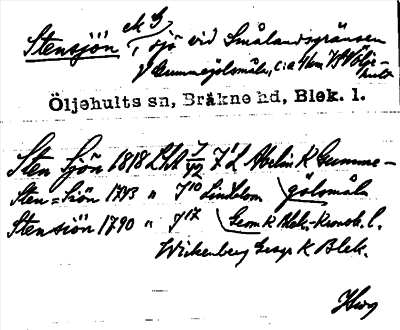 Stensjön, sjö vid Smålandsgränsen
V Gummegölsmåla, c:a 1 km NV Öljehult
Öljehults sn, Bräkne hd, Blek. l.
Sten Sjön 1818 Lht Abelin K Gumme-
Sten=Siön 1793 " J 10 Lindblom gölsmåla
Stensiön 1790 " J 17 Geom. K Blek.-Kronob. l.
Wickenberg Geogr K Blek.